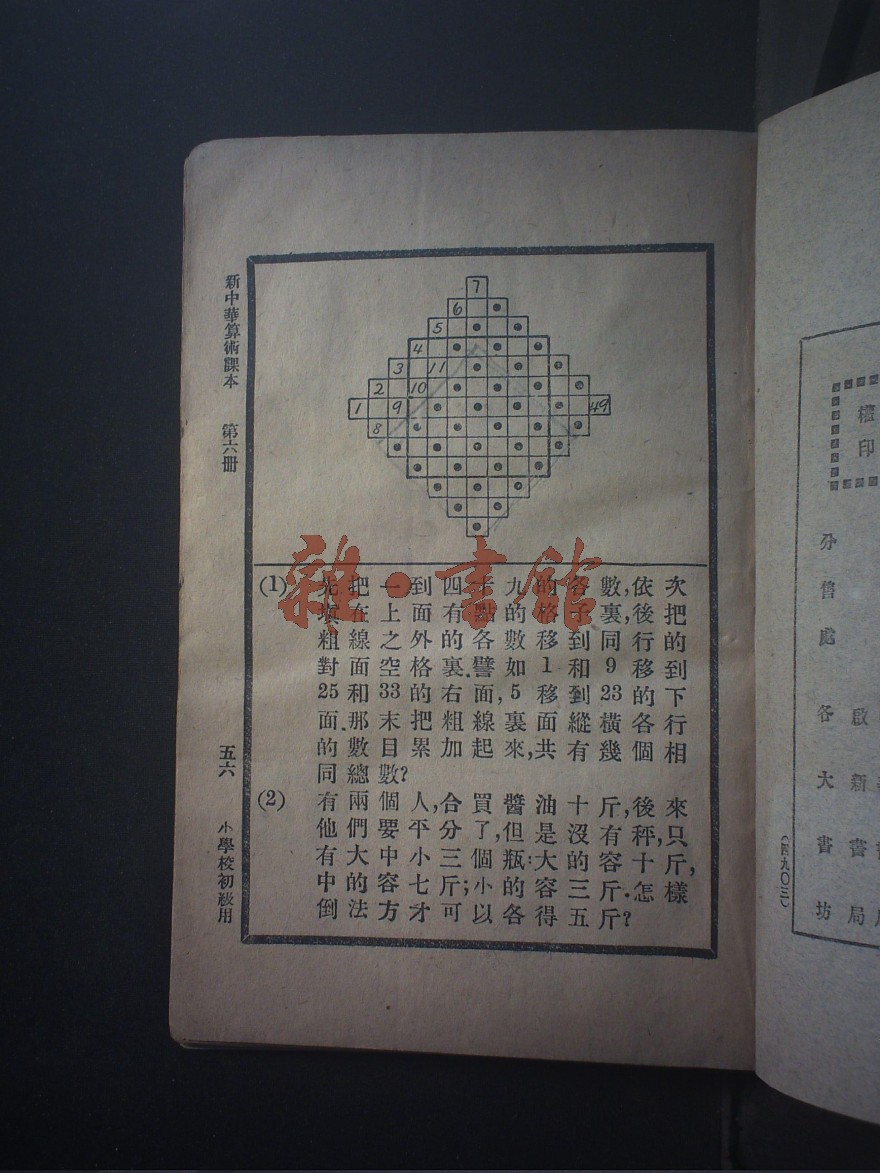 新中華算術課本 第六册
五六
小學校初級用
7
6
5
4
3 11
2 10
1 9 49
8
(1) 先把一到四十九的各數,依次
填在上面有點的格子裏,後把
粗線之外的各數移到同行的
對面空格裏.譬如1和9移到
25和33的右面,5移到23的下
面.那末把粗線裏面縱橫各行
的數目累加起來,共有幾個相
同總數?
(2) 有兩個人,合買醬油十斤,後來
他們要平分了,但是沒有秤,只
有大中小三個瓶:大的容十斤,
中的容七斤;小的容三斤.怎樣
倒法方才可以各得五斤?
雜·書館
權印
分售處 各大書坊
啟新書局
(四九〇三)